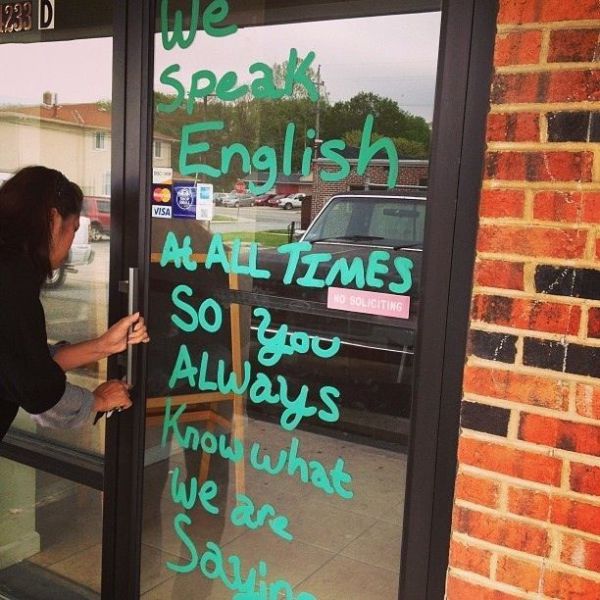 1233 D
We
Speak
English
At ALL TIMES
NO SOLICITING
So You
ALWays
Know what
We are
Saying
MasterCard
VISA